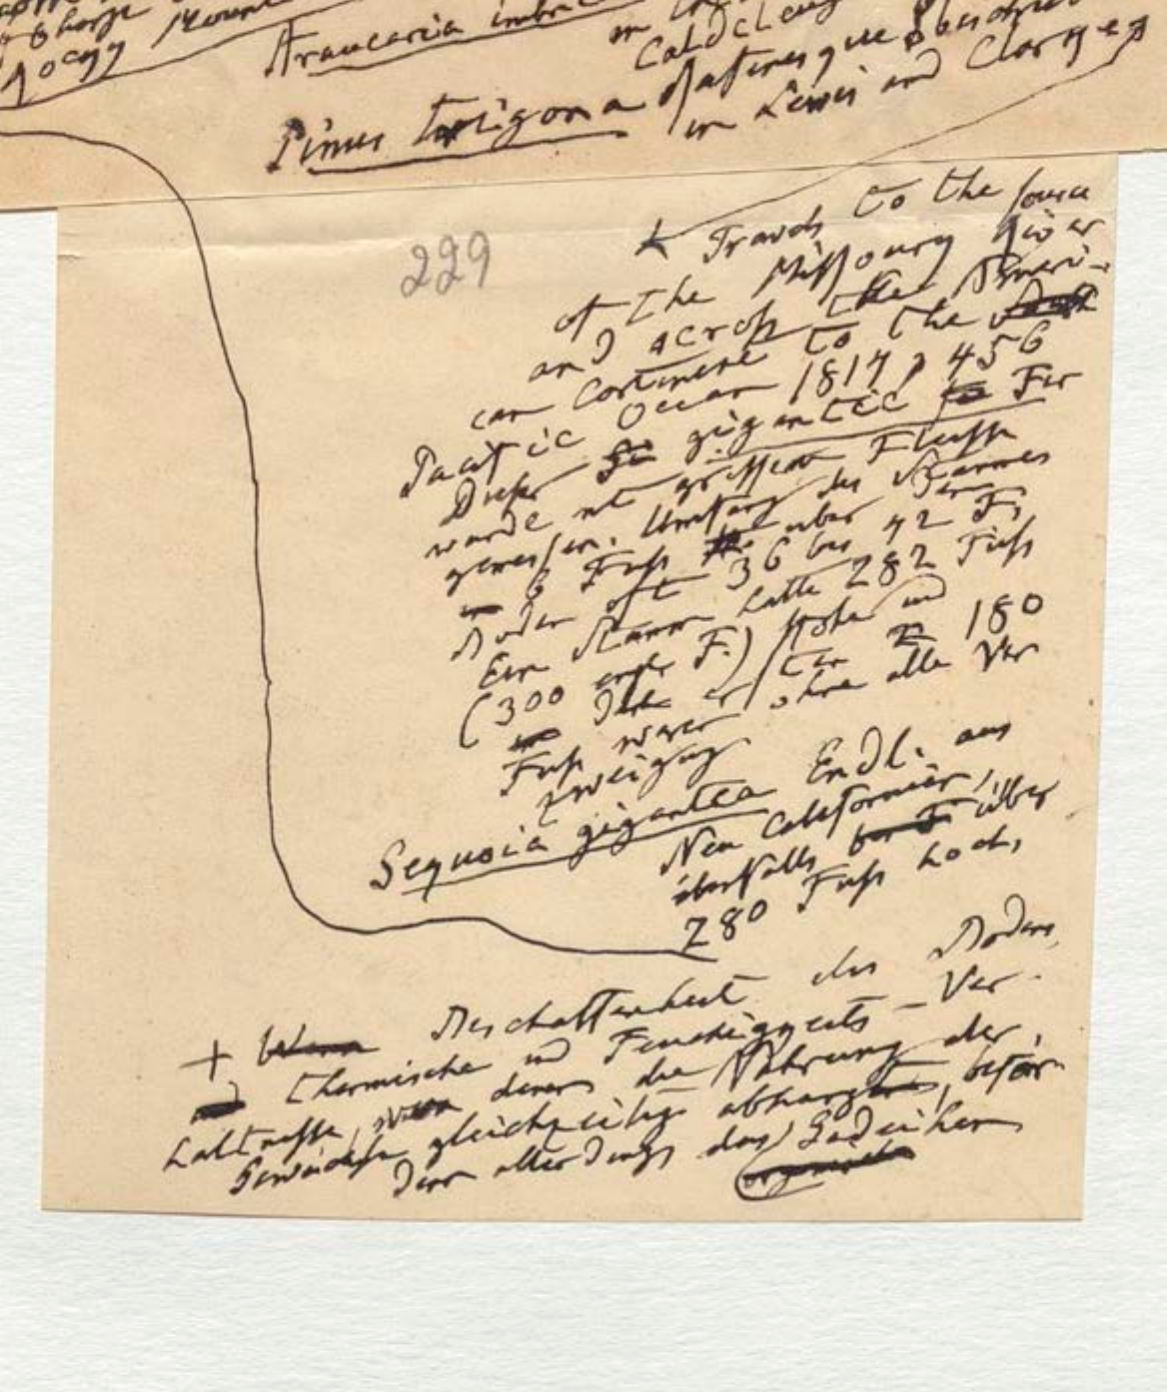 Rocky Mount
Araucaria imbric
Pinus trigona Rafinesque
in Lewis und Clarkes
229
Travels to the source
of the Missoury River
and across the Ameri-
can Continent to the
Pacific Ocean 1814, p 456
Dieser gigantic Fir
wurde mit grossem Fleisse
gemessen. Umfang des Stammes
6 Fuss über der
Boden oft 36 bis 42 F,
Ein Stamm hatte 282 Fuss
(300 engl F.) Höhe und
die ersten 180
Fuss waren ohne alle Ver
zweigung
Sequoia gigantea Endl. aus
Neu Californien,
ebenfalls über
280 Fuss hoch,
+ Wenn Beschaffenheit des Bodens,
thermische und Feuchtigkeits-Ver-
hältnisse, von denen die Nahrung der
Gewächse gleichzeitig abhangt, beför-
dern allerdings das Gedeihen
organischen